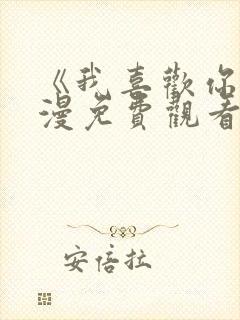 《我喜歡你
漫免費觀看
安倍拉